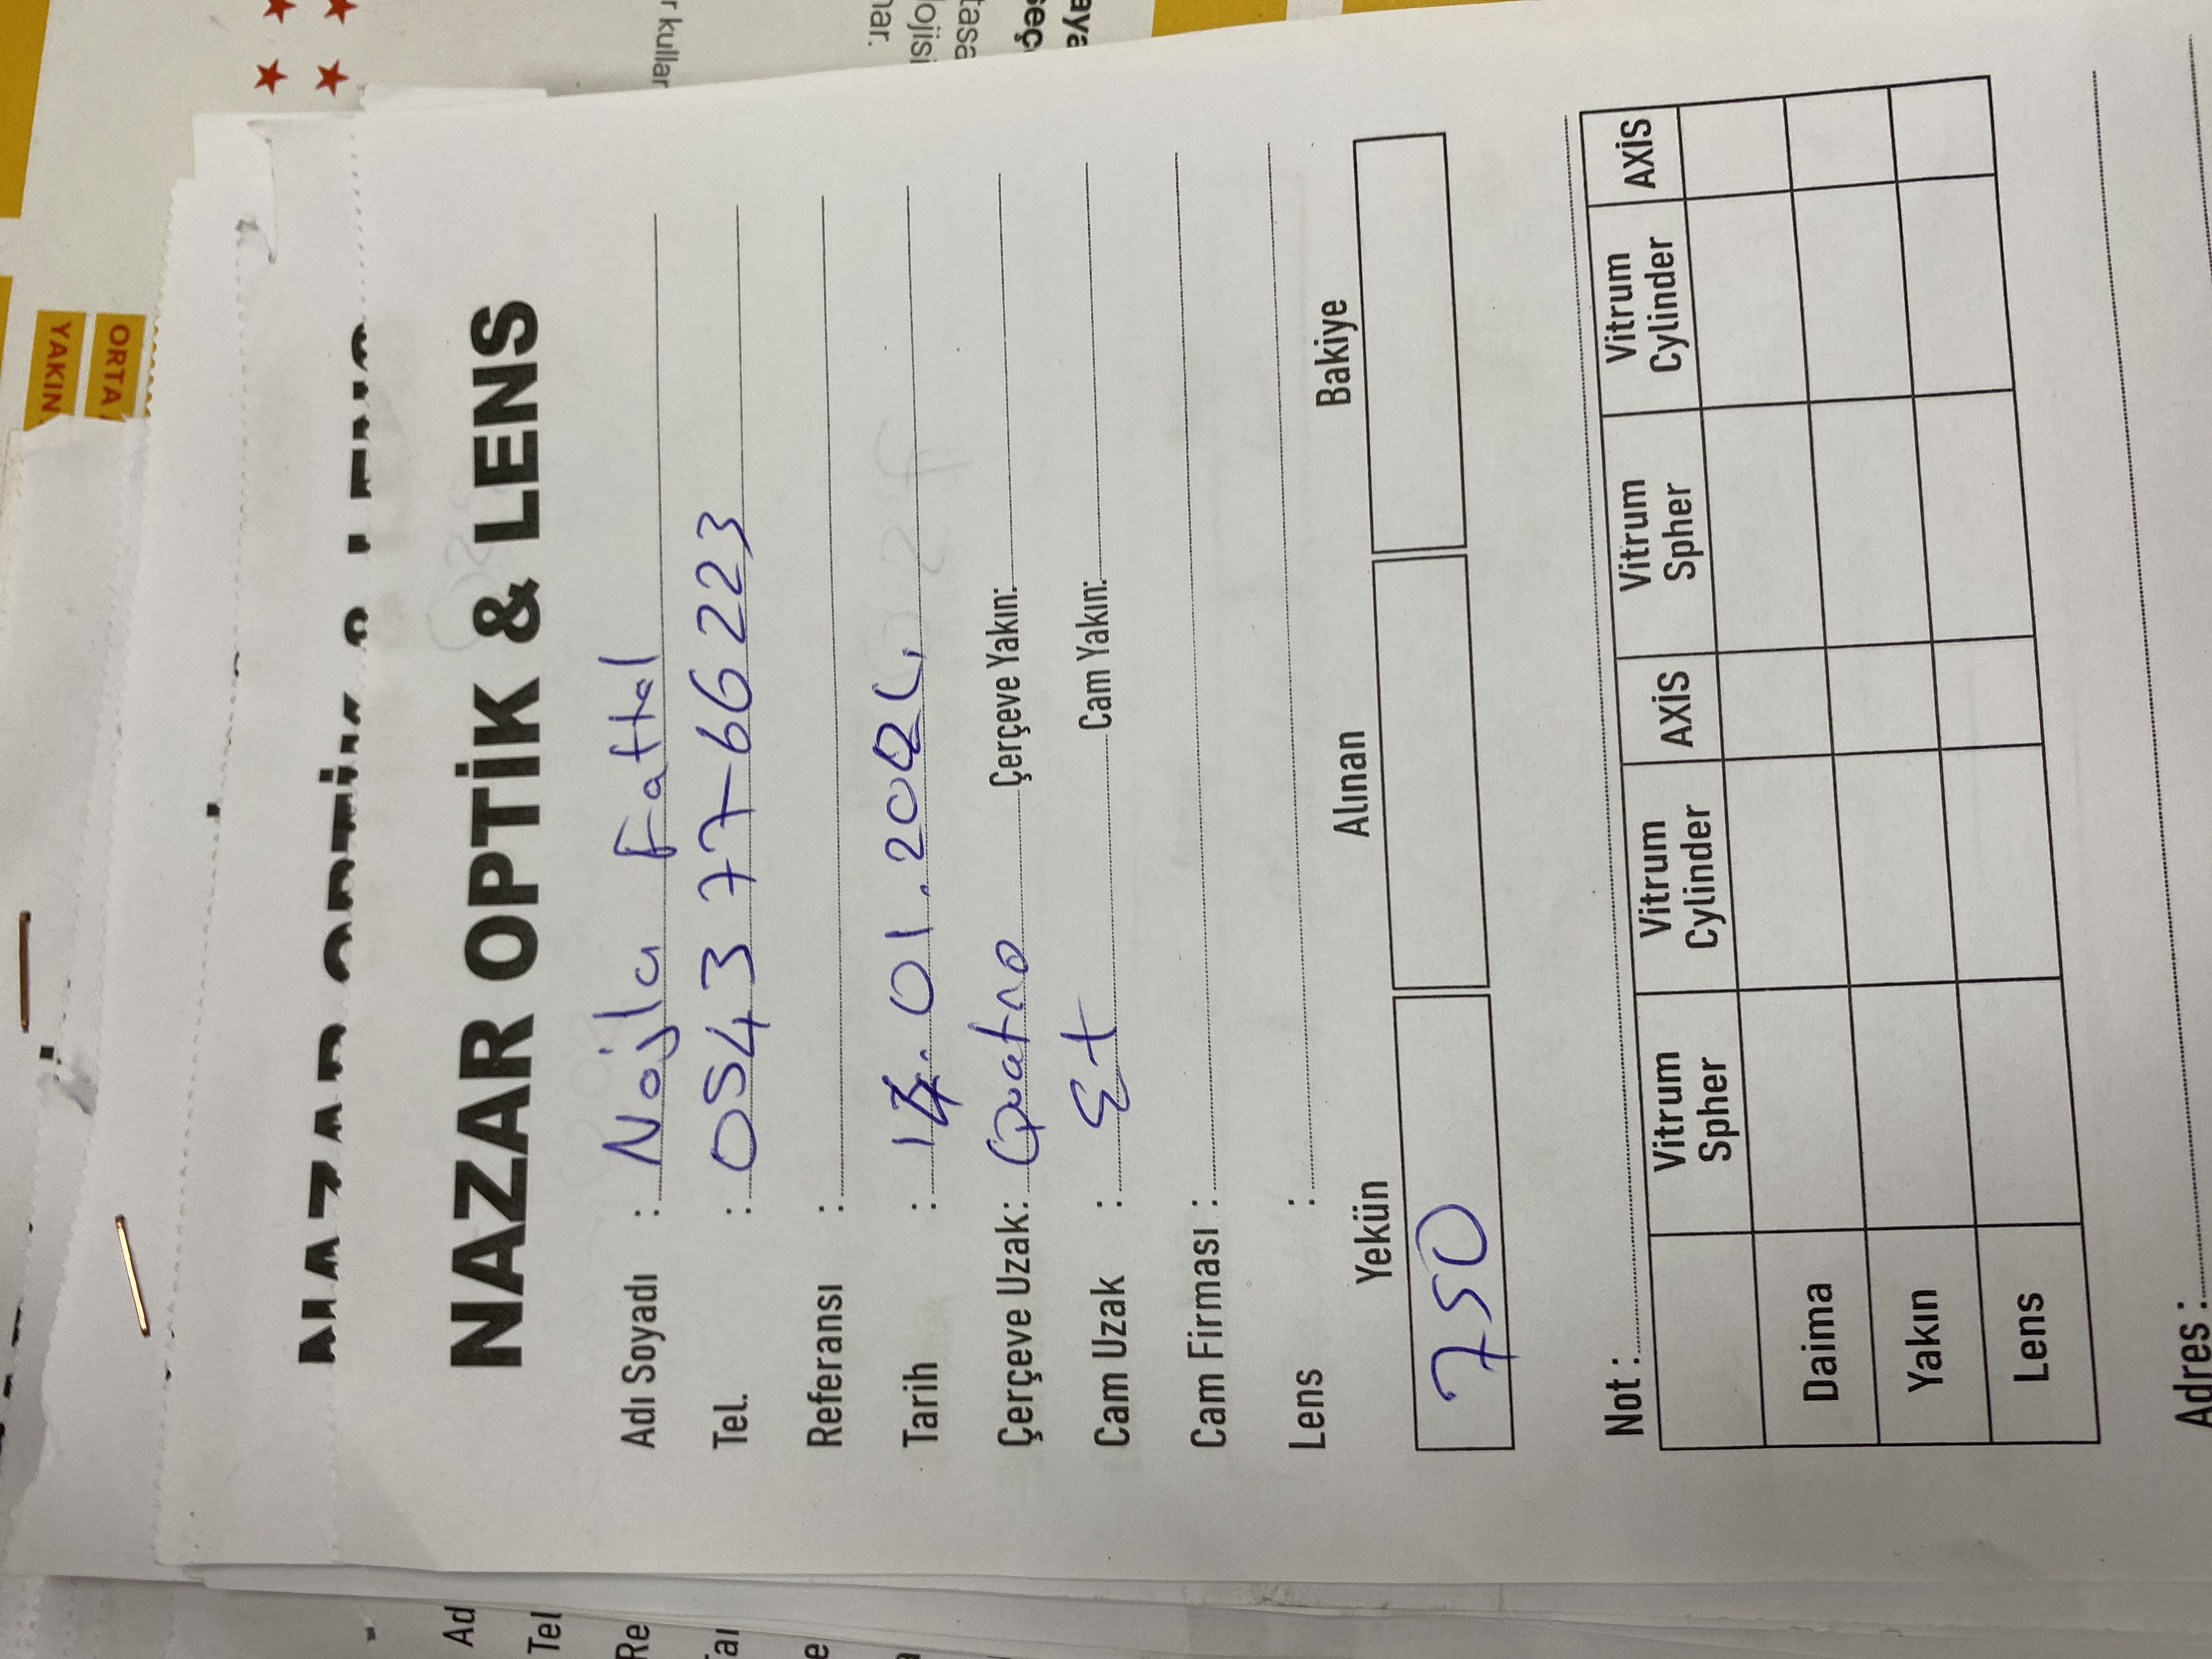 YAKIN
ORTA
NAZAR OPTİK & LENS
NAZAR OPTİK & LENS
Adı Soyadı : Najla Fattal
Tel. : 0543 77 66 223
Referansı :
Tarih : 01.20
Çerçeve Uzak: Quatro Çerçeve Yakın:
Cam Uzak : Cam Yakın:
Cam Firması :
Lens :
Yekün Alınan Bakiye
750
Not :
Vitrum Spher Vitrum Cylinder AXİS Vitrum Spher Vitrum Cylinder AXİS
Daima
Yakın
Lens
Adres :
Ad
Tel
Re